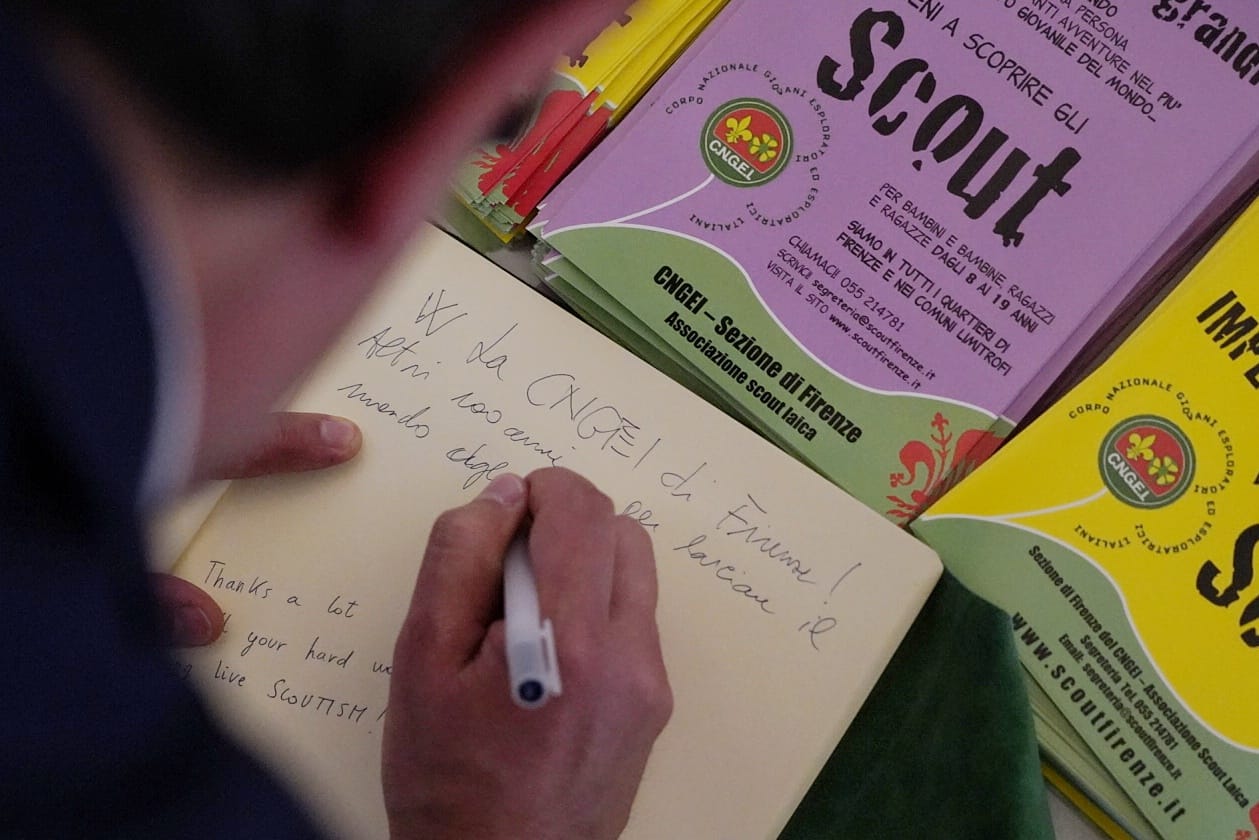 grand
MONDO
PERSONA
TANTI AVVENTURE NEL PIU'
GIOVANILE DEL MONDO...
VIENI A SCOPRIRE GLI
scout
CORPO NAZIONALE GIOVANI ESPLORATORI ED ESPLORATRICI ITALIANI
C.N.G.E.I.
PER BAMBINI E BAMBINE, RAGAZZI
E RAGAZZE DAGLI 8 AI 19 ANNI
SIAMO IN TUTTI I QUARTIERI DI
FIRENZE E NEI COMUNI LIMITROFI
CHIAMACI! 055 214781
SCRIVICI! segreteria@scoutfirenze.it
VISITA IL SITO www.scoutfirenze.it
CNGEI – Sezione di Firenze
Associazione scout laica
W La CNGEI di Firenze!
Altri 100 anni per lasciare il
mondo
Thanks a lot
your hard
live SCOUTISM!
IMP
CORPO NAZIONALE GIOVANI ESPLORATORI ED ESPLORATRICI ITALIANI
C.N.G.E.I.
Sezione di Firenze del CNGEI – Associazione Scout Laica
Segreteria Tel. 055 214781
Email: segreteria@scoutfirenze.it
www.scoutfirenze.it